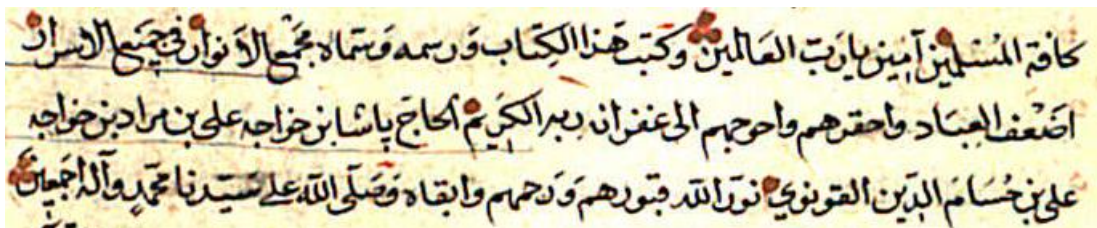 كافة المسلمين آمين يا رب العالمين وكتب هذا الكتاب ورسمه وسماه مجمع الأنوار في جميع الاسرار
اضعف العباد واحقرهم واحوجهم الى غفران ربه الكريم الحاج پاشا بن خواجه على بن مراد بن خواجه
على بن حسام الدين القونوي نور الله قبورهم ورحمهم وابقاه وصلى الله على سيدنا محمد وآله اجمعين